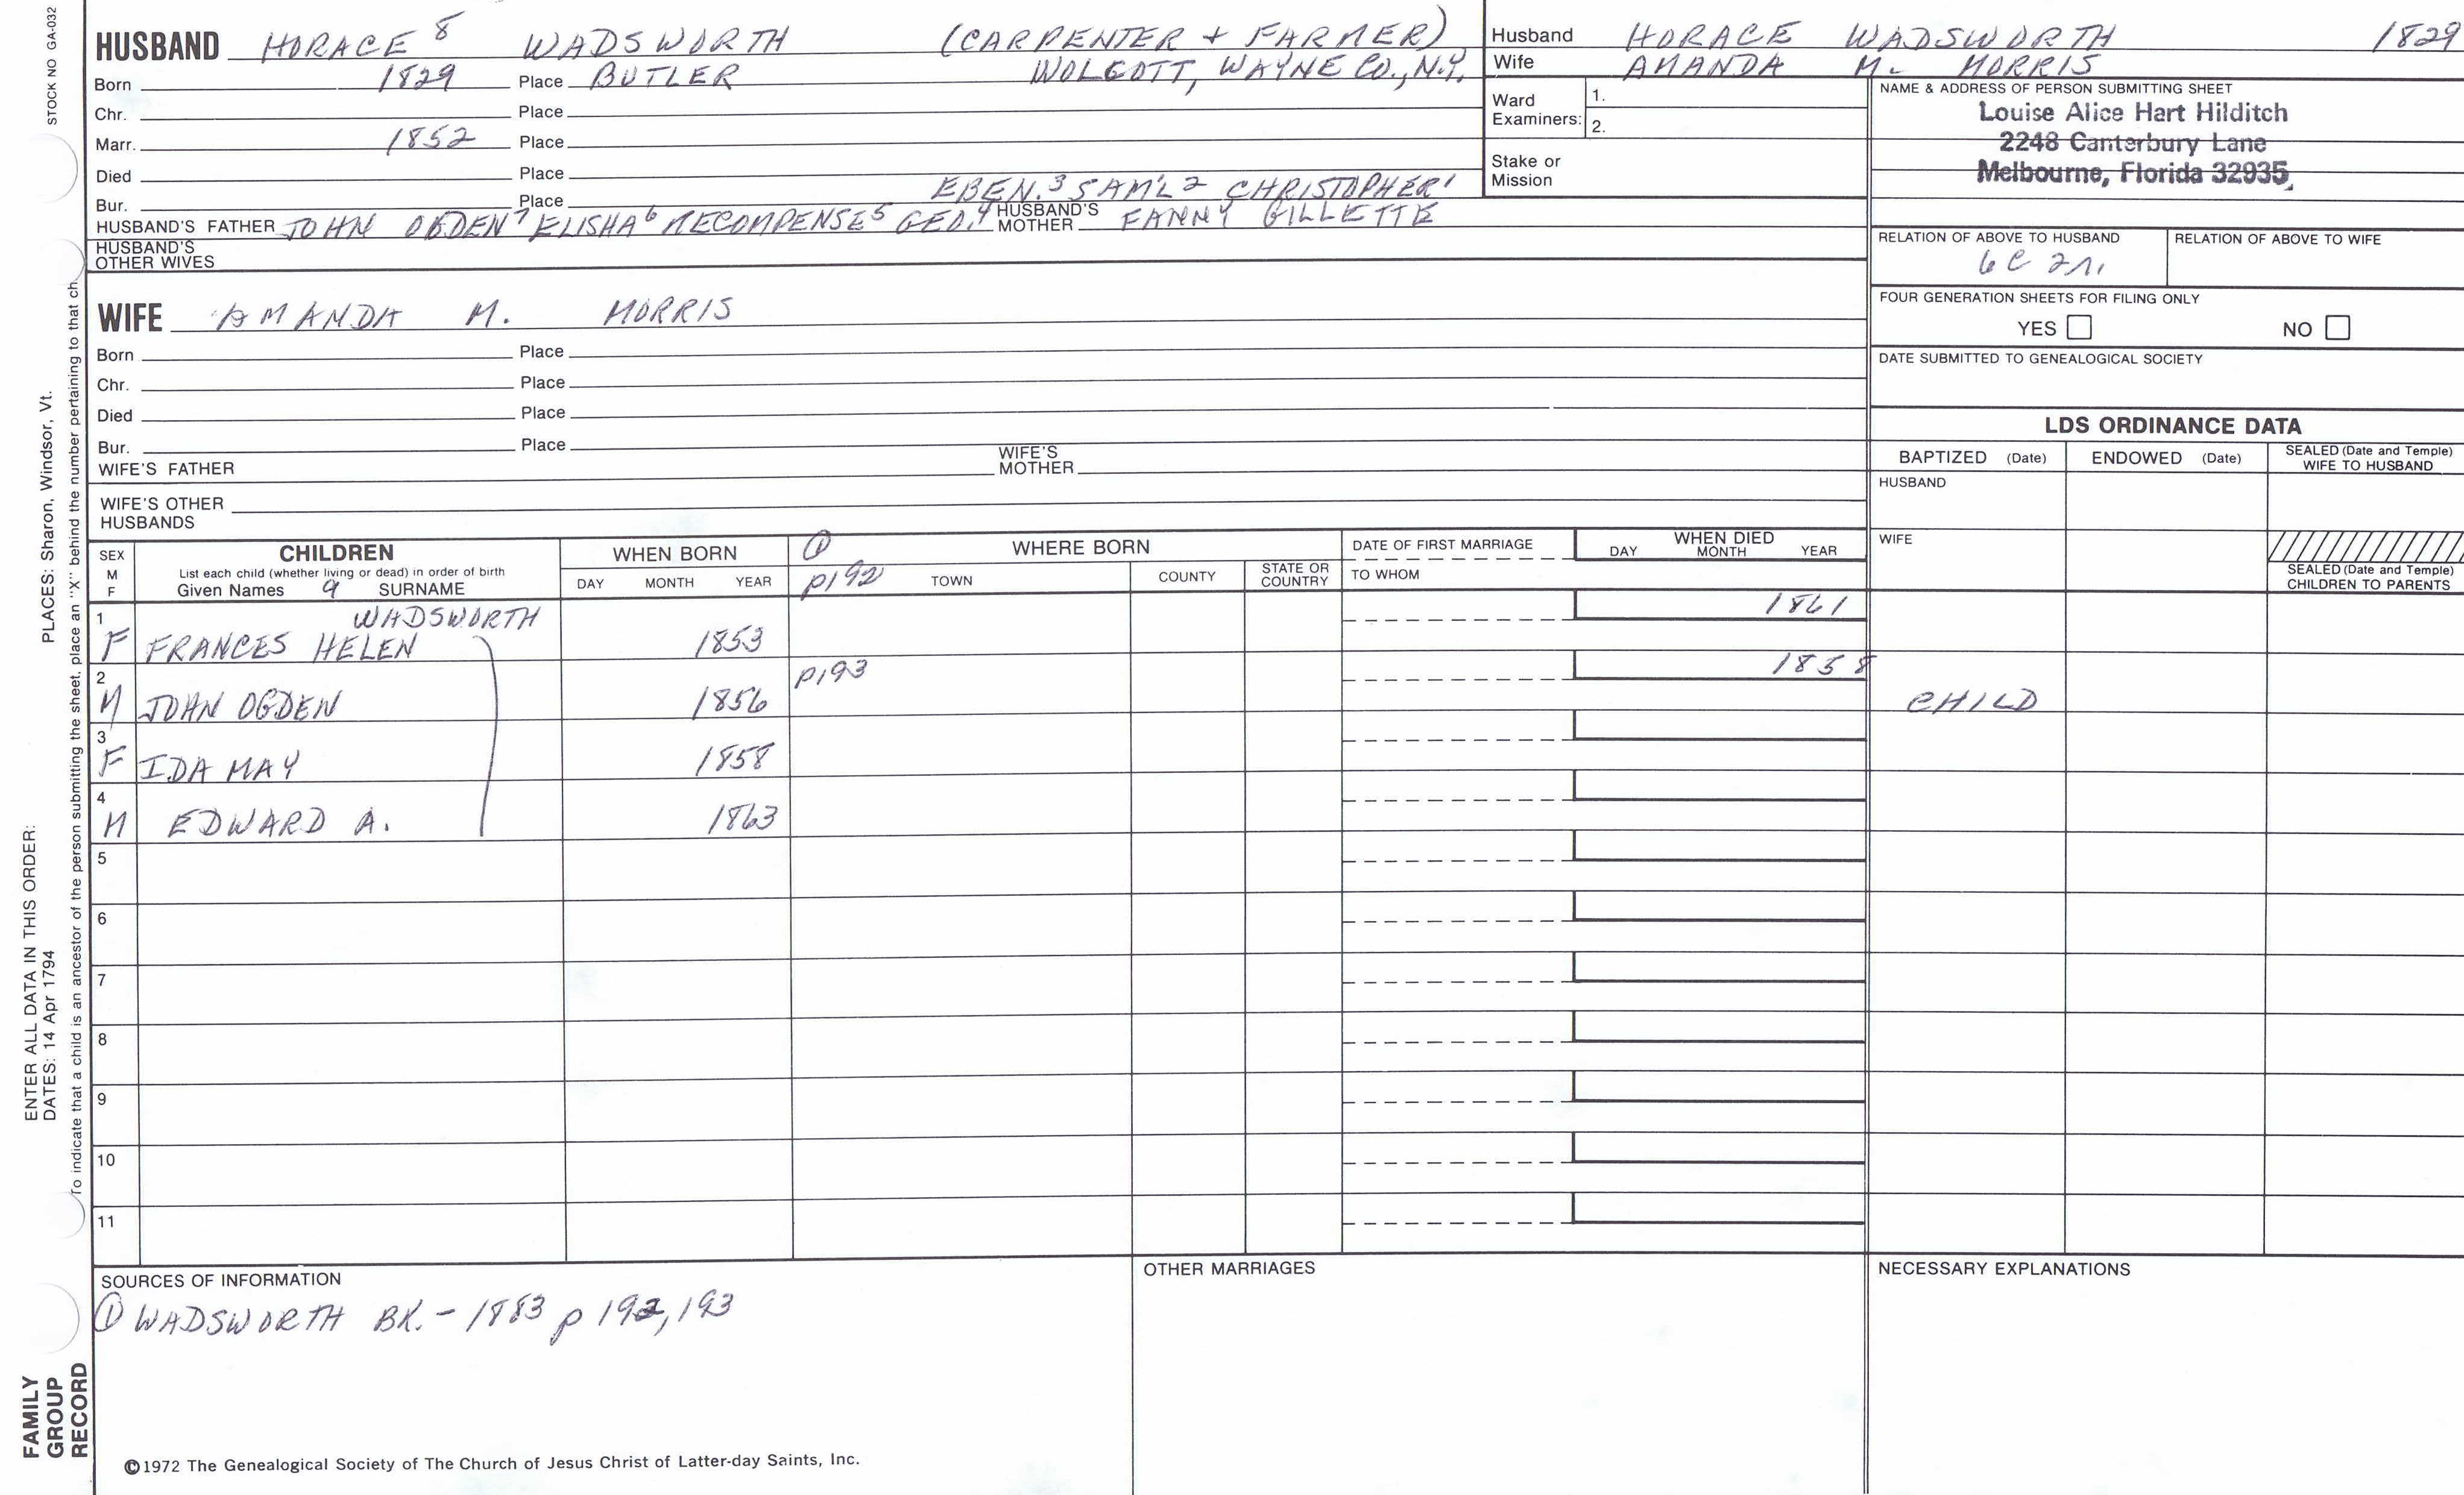 STOCK NO GA-032
HUSBAND HORACE 8 WADSWORTH (CARPENTER + FARMER)
Born 1829 Place BUTLER WOLCOTT, WAYNE CO., N.Y.
Chr. Place
Marr. 1852 Place
Died Place
Bur. Place EBEN.3 SAM'L 2 CHRISTOPHER1
HUSBAND'S FATHER JOHN OGDEN7 ELISHA6 RECOMPENSE5 GEO.4 HUSBAND'S MOTHER FANNY GILLETTE
HUSBAND'S OTHER WIVES
WIFE AMANDA M. MORRIS
Born Place
Chr. Place
Died Place
Bur. Place
WIFE'S FATHER WIFE'S MOTHER
WIFE'S OTHER HUSBANDS
Husband HORACE WADSWORTH 1829
Wife AMANDA M. MORRIS
Ward Examiners: 1.
2.
Stake or Mission
NAME & ADDRESS OF PERSON SUBMITTING SHEET
Louise Alice Hart Hilditch
2248 Canterbury Lane
Melbourne, Florida 32935
RELATION OF ABOVE TO HUSBAND RELATION OF ABOVE TO WIFE
6C 2r.
FOUR GENERATION SHEETS FOR FILING ONLY
YES NO
DATE SUBMITTED TO GENEALOGICAL SOCIETY
LDS ORDINANCE DATA
BAPTIZED (Date) ENDOWED (Date) SEALED (Date and Temple) WIFE TO HUSBAND
HUSBAND
WIFE
SEALED (Date and Temple) CHILDREN TO PARENTS
SEX M F
CHILDREN
List each child (whether living or dead) in order of birth
Given Names 9 SURNAME
WHEN BORN
DAY MONTH YEAR
① WHERE BORN
p192 TOWN COUNTY STATE OR COUNTRY
DATE OF FIRST MARRIAGE
TO WHOM
WHEN DIED
DAY MONTH YEAR
1 WADSWORTH 1861
F FRANCES HELEN 1853
2 p193 1858
M JOHN OGDEN 1856 CHILD
3
F IDA MAY 1858
4
M EDWARD A. 1863
5
6
7
8
9
10
11
SOURCES OF INFORMATION
① WADSWORTH BK. - 1883 p 192, 193
OTHER MARRIAGES
NECESSARY EXPLANATIONS
©1972 The Genealogical Society of The Church of Jesus Christ of Latter-day Saints, Inc.
FAMILY GROUP RECORD
ENTER ALL DATA IN THIS ORDER:
DATES: 14 Apr 1794
PLACES: Sharon, Windsor, Vt.
To indicate that a child is an ancestor of the person submitting the sheet, place an "X" behind the number pertaining to that ch